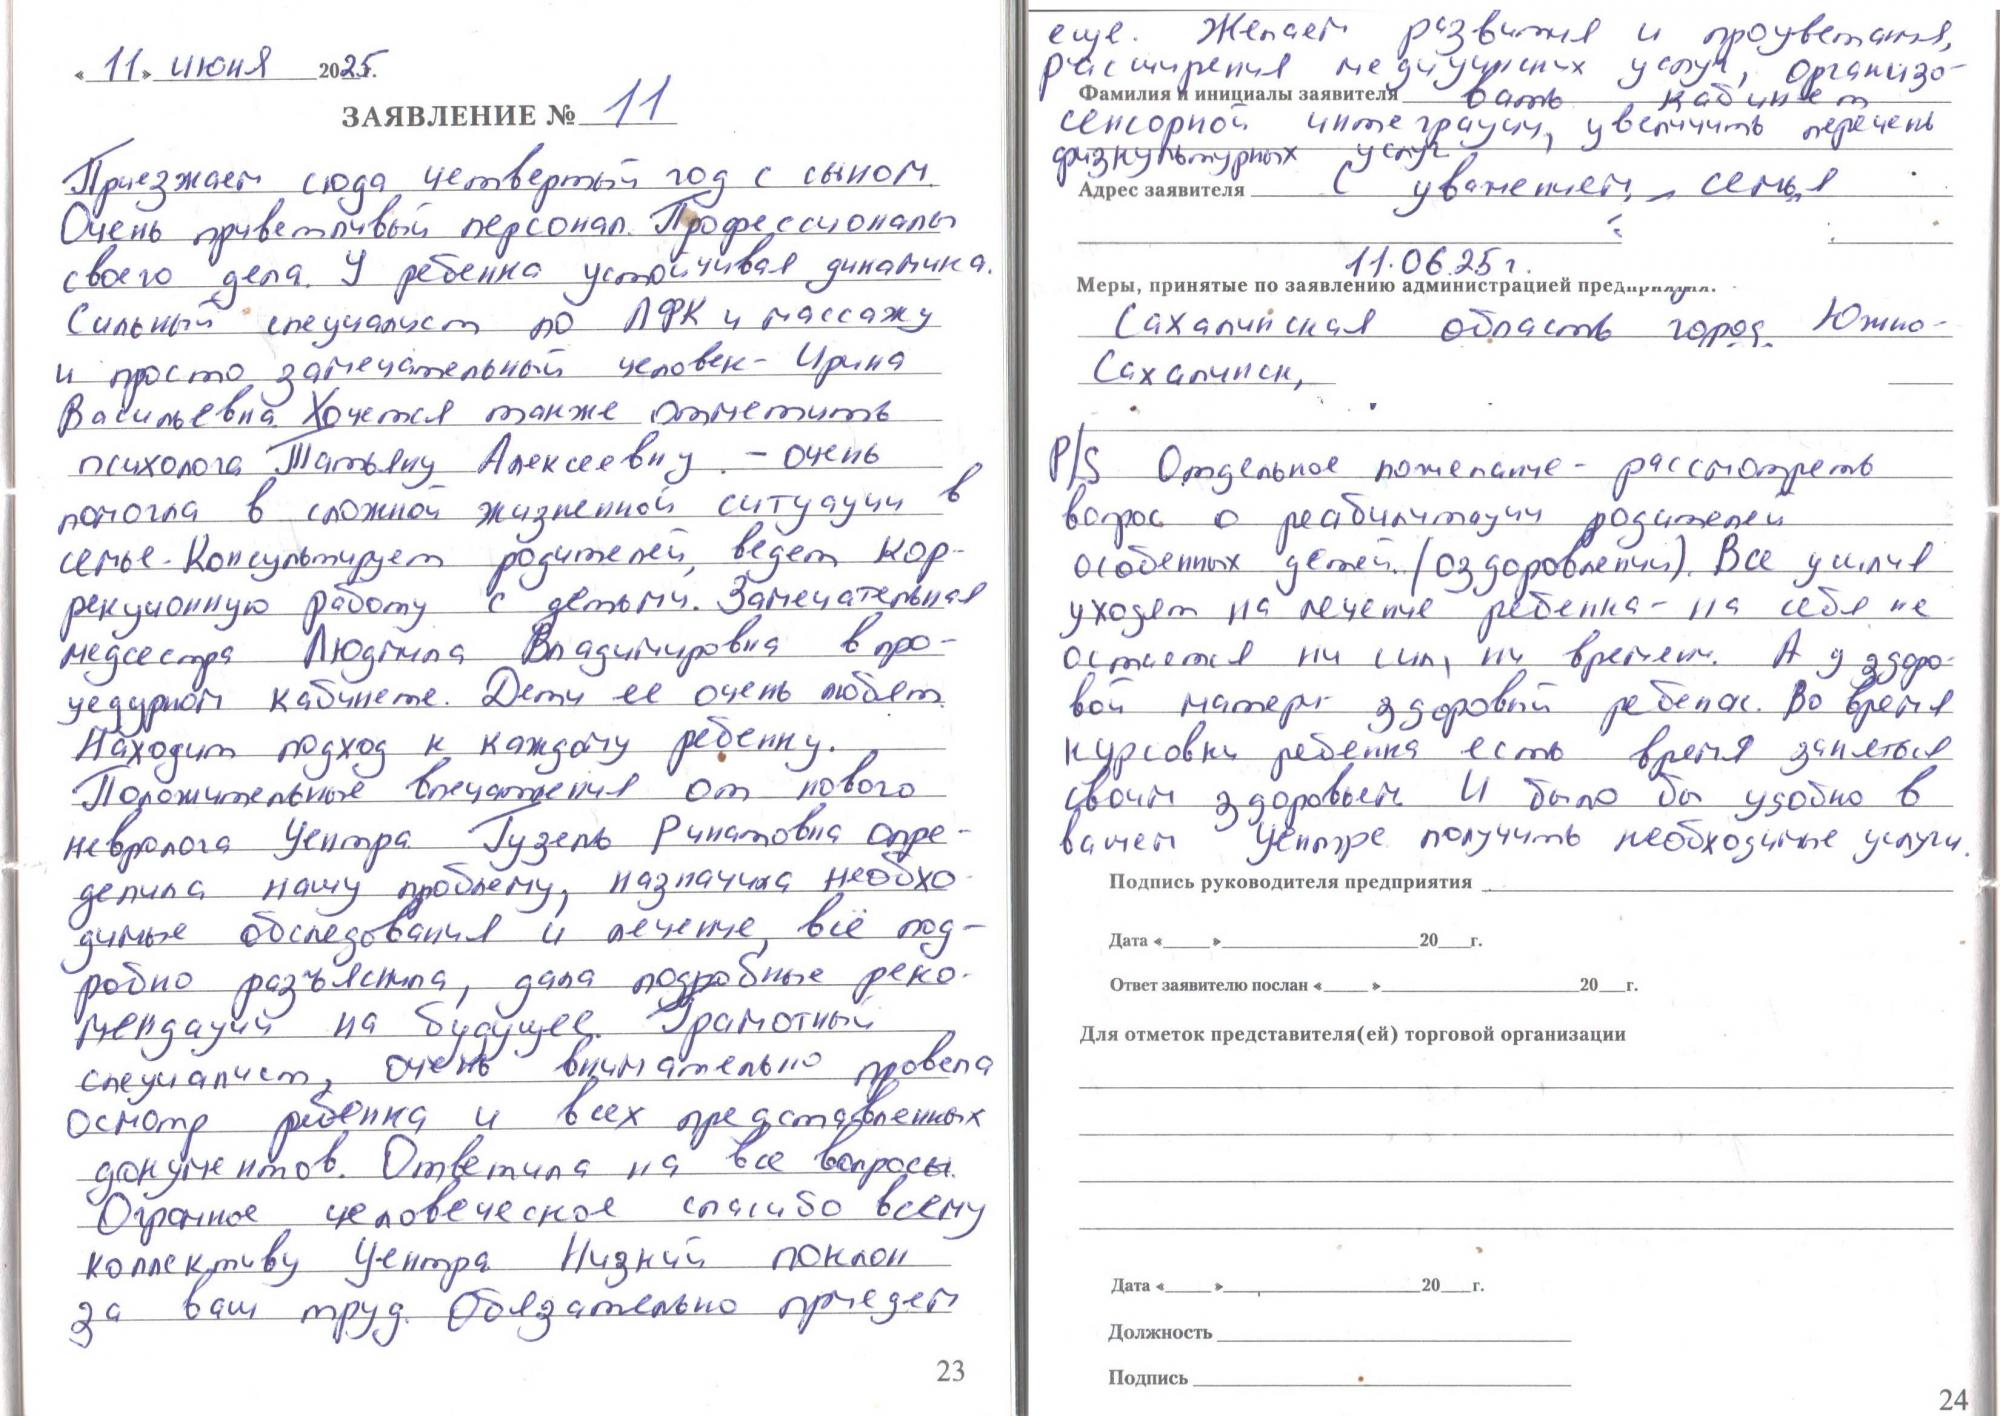 «11» июня 2025г.
ЗАЯВЛЕНИЕ № 11
Приезжаем сюда четвертый год с сыном.
Очень приветливый персонал. Профессионалы
своего дела. У ребенка устойчивая динамика.
Сильный специалист по ЛФК и массажу
и просто замечательный человек - Ирина
Васильевна. Хочется также отметить
психолога Татьяну Алексеевну - очень
помогла в сложной жизненной ситуации в
семье. Консультирует родителей, ведет кор-
рекционную работу с детьми. Замечательная
медсестра Людмила Владимировна в про-
цедурном кабинете. Дети ее очень любят.
Находит подход к каждому ребенку.
Положительные впечатления от нового
невролога Центра. Гузель Ринатовна опре-
делила нашу проблему, назначила необхо-
димые обследования и лечение, всё под-
робно разъяснила, дала подробные реко-
мендации на будущее. Грамотный
специалист, очень внимательно провела
осмотр ребенка и всех представленных
документов. Ответила на все вопросы.
Огромное человеческое спасибо всему
коллективу Центра. Низкий поклон
за ваш труд. Обязательно приедем
23
еще. Желаем развития и процветания,
расширения медицинских услуг, организо-
Фамилия и инициалы заявителя вать кабинет
сенсорной интеграции, увеличить перечень
физкультурных услуг.
Адрес заявителя С уважением, семья
11.06.25г.
Меры, принятые по заявлению администрацией предприятия.
Сахалинская область город Южно-
Сахалинск,
P/S Отдельное пожелание - рассмотреть
вопрос о реабилитации родителей
особенных детей (оздоровлении). Все усилия
уходят на лечение ребенка - на себя не
остается ни сил, ни времени. А у здоро-
вой матери здоровый ребенок. Во время
курсовки ребенка есть время заняться
своим здоровьем. И было бы удобно в
вашем Центре получить необходимые услуги.
Подпись руководителя предприятия
Дата « » 20 г.
Ответ заявителю послан « » 20 г.
Для отметок представителя(ей) торговой организации
Дата « » 20 г.
Должность
Подпись
24